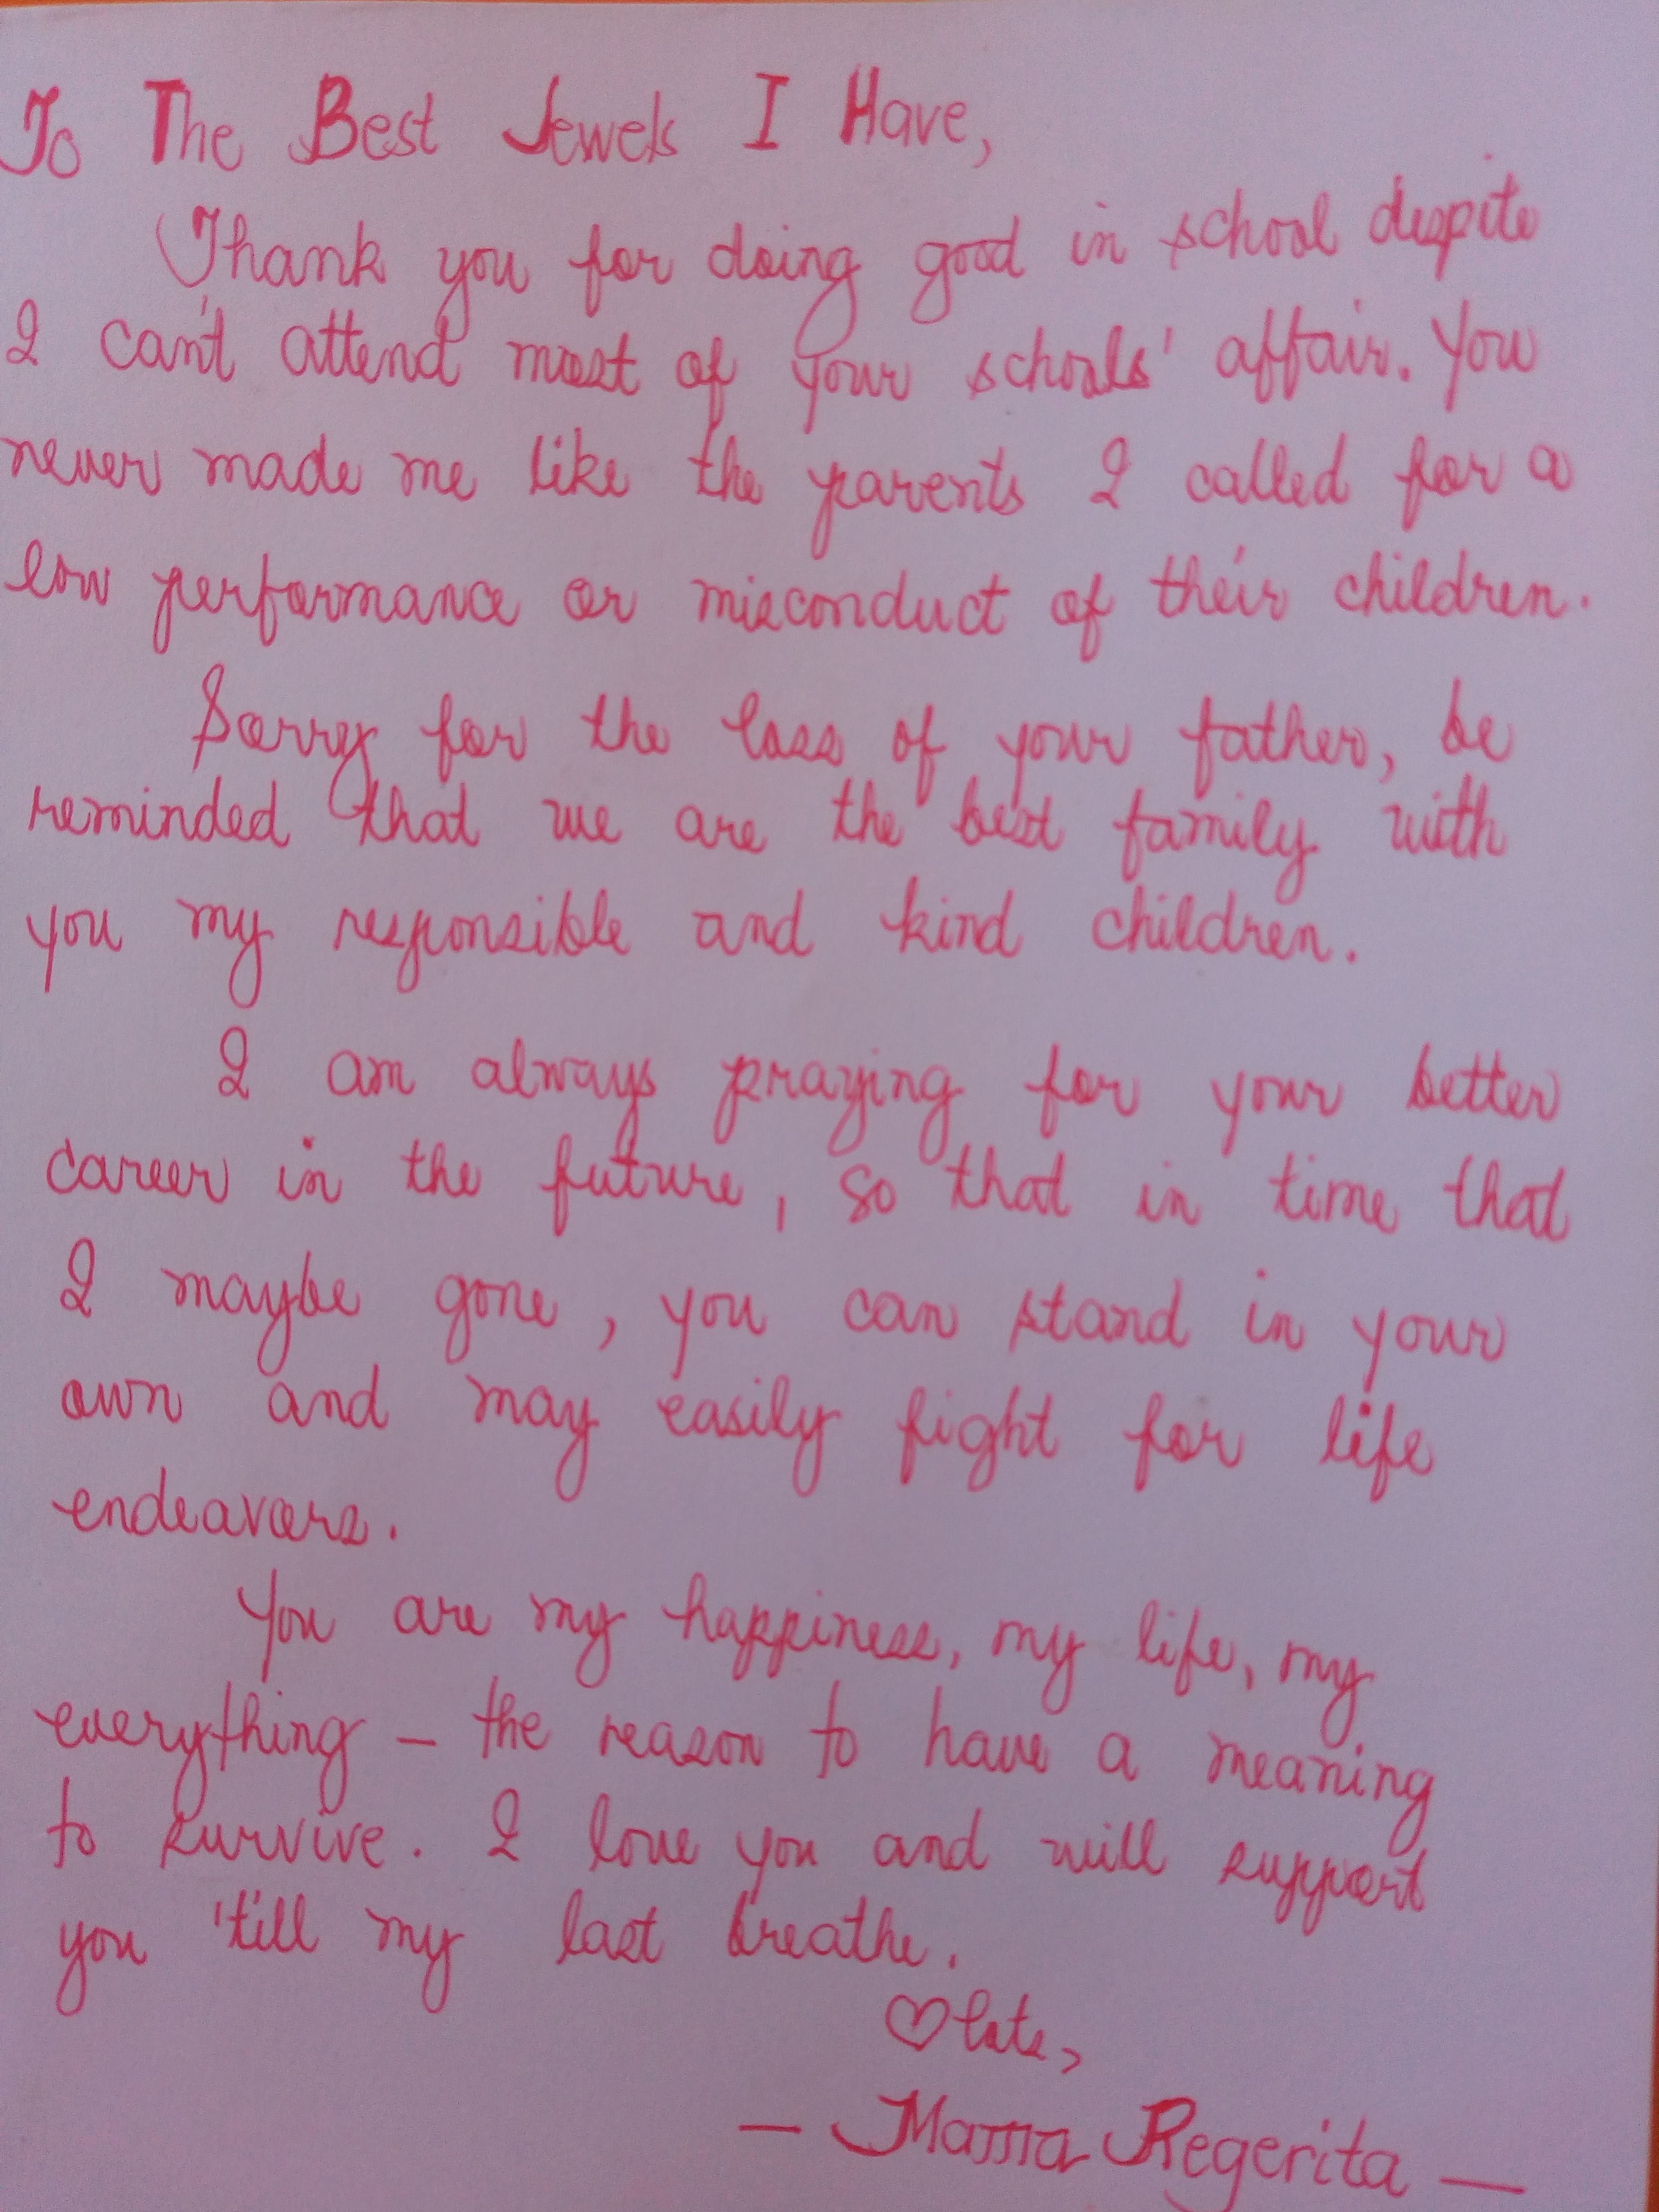 To The Best Jewels I Have,
Thank you for doing good in school despite
I can't attend most of your schools' affair. You
never made me like the parents I called for a
low performance or misconduct of their children.
Sorry for the loss of your father, be
reminded that we are the best family with
you my responsible and kind children.
I am always praying for your better
career in the future, so that in time that
I maybe gone, you can stand in your
own and may easily fight for life
endeavors.
You are my happiness, my life, my
everything – the reason to have a meaning
to survive. I love you and will support
you 'till my last breathe.
♡lots,
– Mama Regerita –